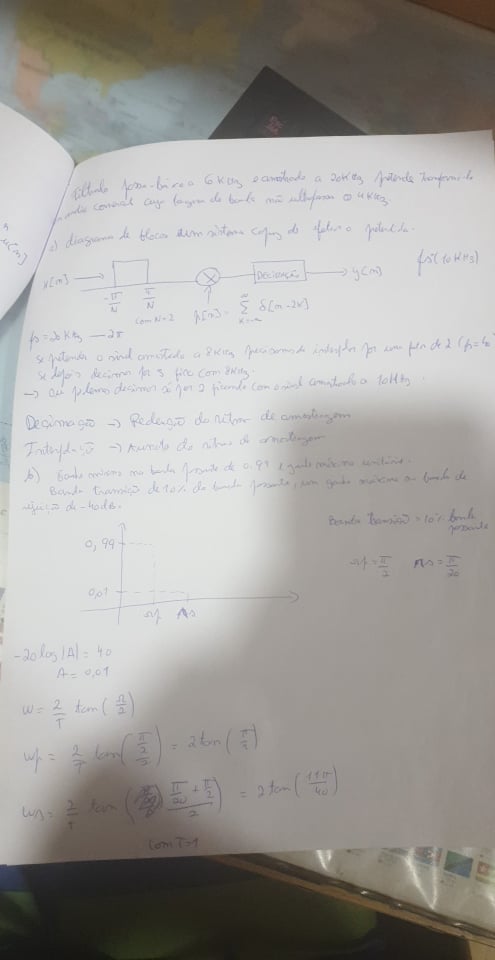 Filtrado passa-baixo a 6 KHz e amostrado a 20KHz, pretende
cuja largura de banda não ultrapassa os 4KHz.
a) diagrama de blocos dum sistema capaz de
x[n] → → ⊗ → Decimação → y(m) fs(10KHz)
-π/N π/N
com N=2 p[n] = ∑ δ[n-2K]
K=-∞ ∞
fs = 20KHz — 2π
Se pretende o sinal amostrado a 8KHz precisamos de interpolar por um fator de 2
Se depois decimar por 5 fica com 8KHz.
→ Ou podemos decimar só por 2 ficando com o sinal amostrado a 10KHz.
Decimação → Redução do ritmo de amostragem
Interpolação → Aumento do ritmo de amostragem
b) Ganho mínimo na banda passante de 0,99 e ganho máximo unitário.
Banda transição de 10% da banda passante, com ganho máximo na banda de
rejeição de -40dB.
Banda transição = 10% banda
passante
0,99
Ωp = π/2 Ωs = π/20
0,01
Ωp Ωs
-20log|A| = 40
A = 0,01
W = 2/T tan(Ω/2)
Wp = 2/T tan((π/2)/2) = 2tan(
Ws = 2/T tan((π/20 + π/2)/2) = 2tan(11π/40)
com T=1